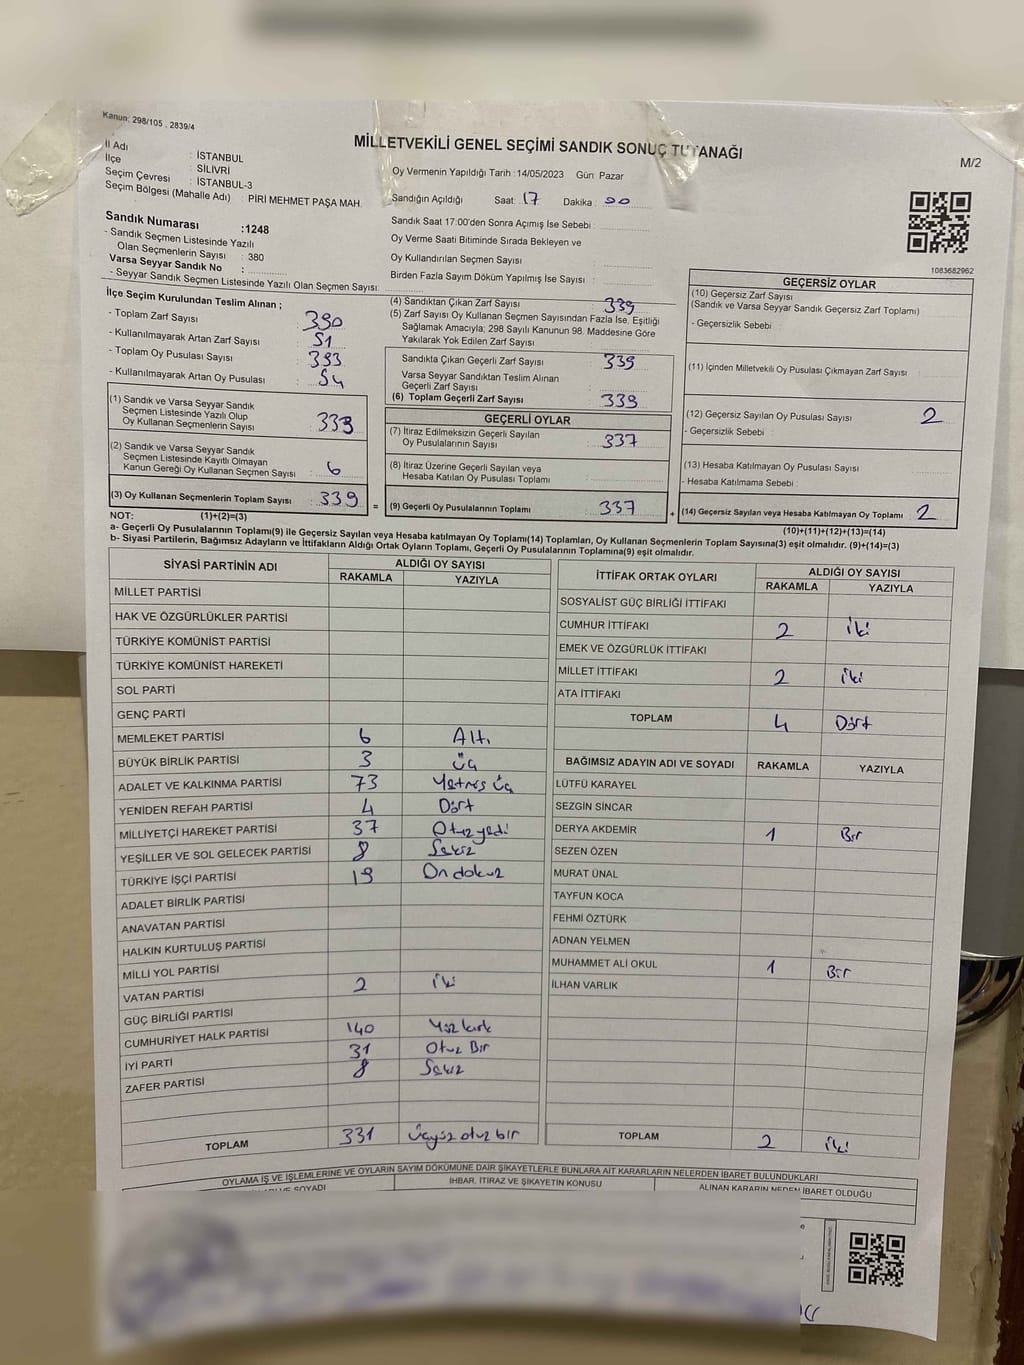 Kanun: 298/105 , 2839/4
MİLLETVEKİLİ GENEL SEÇİMİ SANDIK SONUÇ TUTANAĞI
M/2
İl Adı : İSTANBUL
İlçe : SİLİVRİ
Seçim Çevresi : İSTANBUL-3
Seçim Bölgesi (Mahalle Adı) : PİRİ MEHMET PAŞA MAH.
Oy Vermenin Yapıldığı Tarih :14/05/2023 Gün Pazar
Sandığın Açıldığı Saat: 17 Dakika : 00
Sandık Saat 17:00'den Sonra Açımış İse Sebebi :
Oy Verme Saati Bitiminde Sırada Bekleyen ve
Oy Kullandırılan Seçmen Sayısı :
Birden Fazla Sayım Döküm Yapılmış İse Sayısı :
Sandık Numarası :1248
- Sandık Seçmen Listesinde Yazılı
Olan Seçmenlerin Sayısı : 380
Varsa Seyyar Sandık No :
- Seyyar Sandık Seçmen Listesinde Yazılı Olan Seçmen Sayısı:
1083682962
İlçe Seçim Kurulundan Teslim Alınan ;
- Toplam Zarf Sayısı : 390
- Kullanılmayarak Artan Zarf Sayısı : 51
- Toplam Oy Pusulası Sayısı : 393
- Kullanılmayarak Artan Oy Pusulası : 54
(1) Sandık ve Varsa Seyyar Sandık
Seçmen Listesinde Yazılı Olup
Oy Kullanan Seçmenlerin Sayısı : 333
(2) Sandık ve Varsa Seyyar Sandık
Seçmen Listesinde Kayıtlı Olmayan
Kanun Gereği Oy Kullanan Seçmen Sayısı : 6
(3) Oy Kullanan Seçmenlerin Toplam Sayısı : 339
(4) Sandıktan Çıkan Zarf Sayısı : 339
(5) Zarf Sayısı Oy Kullanan Seçmen Sayısından Fazla İse, Eşitliği
Sağlamak Amacıyla; 298 Sayılı Kanunun 98. Maddesine Göre
Yakılarak Yok Edilen Zarf Sayısı :
Sandıkta Çıkan Geçerli Zarf Sayısı : 339
Varsa Seyyar Sandıktan Teslim Alınan
Geçerli Zarf Sayısı :
(6) Toplam Geçerli Zarf Sayısı : 339
GEÇERLİ OYLAR
(7) İtiraz Edilmeksizin Geçerli Sayılan
Oy Pusulalarının Sayısı : 337
(8) İtiraz Üzerine Geçerli Sayılan veya
Hesaba Katılan Oy Pusulası Toplamı :
= (9) Geçerli Oy Pusulalarının Toplamı : 337
GEÇERSİZ OYLAR
(10) Geçersiz Zarf Sayısı
(Sandık ve Varsa Seyyar Sandık Geçersiz Zarf Toplamı) :
- Geçersizlik Sebebi :
(11) İçinden Milletvekili Oy Pusulası Çıkmayan Zarf Sayısı :
(12) Geçersiz Sayılan Oy Pusulası Sayısı : 2
- Geçersizlik Sebebi :
(13) Hesaba Katılmayan Oy Pusulası Sayısı :
- Hesaba Katılmama Sebebi :
+ (14) Geçersiz Sayılan veya Hesaba Katılmayan Oy Toplamı : 2
NOT: (1)+(2)=(3)
(10)+(11)+(12)+(13)=(14)
a- Geçerli Oy Pusulalarının Toplamı(9) ile Geçersiz Sayılan veya Hesaba katılmayan Oy Toplamı(14) Toplamları, Oy Kullanan Seçmenlerin Toplam Sayısına(3) eşit olmalıdır. (9)+(14)=(3)
b- Siyasi Partilerin, Bağımsız Adayların ve İttifakların Aldığı Ortak Oyların Toplamı, Geçerli Oy Pusulalarının Toplamına(9) eşit olmalıdır.
SİYASİ PARTİNİN ADI ALDIĞI OY SAYISI
RAKAMLA YAZIYLA
MİLLET PARTİSİ
HAK VE ÖZGÜRLÜKLER PARTİSİ
TÜRKİYE KOMÜNİST PARTİSİ
TÜRKİYE KOMÜNİST HAREKETİ
SOL PARTİ
GENÇ PARTİ
MEMLEKET PARTİSİ 6 Altı
BÜYÜK BİRLİK PARTİSİ 3 Üç
ADALET VE KALKINMA PARTİSİ 73 Yetmiş Üç
YENİDEN REFAH PARTİSİ 4 Dört
MİLLİYETÇİ HAREKET PARTİSİ 37 Otuz yedi
YEŞİLLER VE SOL GELECEK PARTİSİ 8 Sekiz
TÜRKİYE İŞÇİ PARTİSİ 19 On dokuz
ADALET BİRLİK PARTİSİ
ANAVATAN PARTİSİ
HALKIN KURTULUŞ PARTİSİ
MİLLİ YOL PARTİSİ
VATAN PARTİSİ 2 İki
GÜÇ BİRLİĞİ PARTİSİ
CUMHURİYET HALK PARTİSİ 140 Yüz kırk
İYİ PARTİ 31 Otuz Bir
ZAFER PARTİSİ 8 Sekiz
TOPLAM 331 Üçyüz otuz bir
İTTİFAK ORTAK OYLARI ALDIĞI OY SAYISI
RAKAMLA YAZIYLA
SOSYALİST GÜÇ BİRLİĞİ İTTİFAKI
CUMHUR İTTİFAKI 2 İki
EMEK VE ÖZGÜRLÜK İTTİFAKI
MİLLET İTTİFAKI 2 İki
ATA İTTİFAKI
TOPLAM 4 Dört
BAĞIMSIZ ADAYIN ADI VE SOYADI RAKAMLA YAZIYLA
LÜTFÜ KARAYEL
SEZGİN SİNCAR
DERYA AKDEMİR 1 Bir
SEZEN ÖZEN
MURAT ÜNAL
TAYFUN KOCA
FEHMİ ÖZTÜRK
ADNAN YELMEN
MUHAMMET ALİ OKUL 1 Bir
İLHAN VARLIK
TOPLAM 2 İki
OYLAMA İŞ VE İŞLEMLERİNE VE OYLARIN SAYIM DÖKÜMÜNE DAİR ŞİKAYETLERLE BUNLARA AİT KARARLARIN NELERDEN İBARET BULUNDUKLARI
SOYADI İHBAR, İTİRAZ VE ŞİKAYETİN KONUSU ALINAN KARARIN NEDEN İBARET OLDUĞU